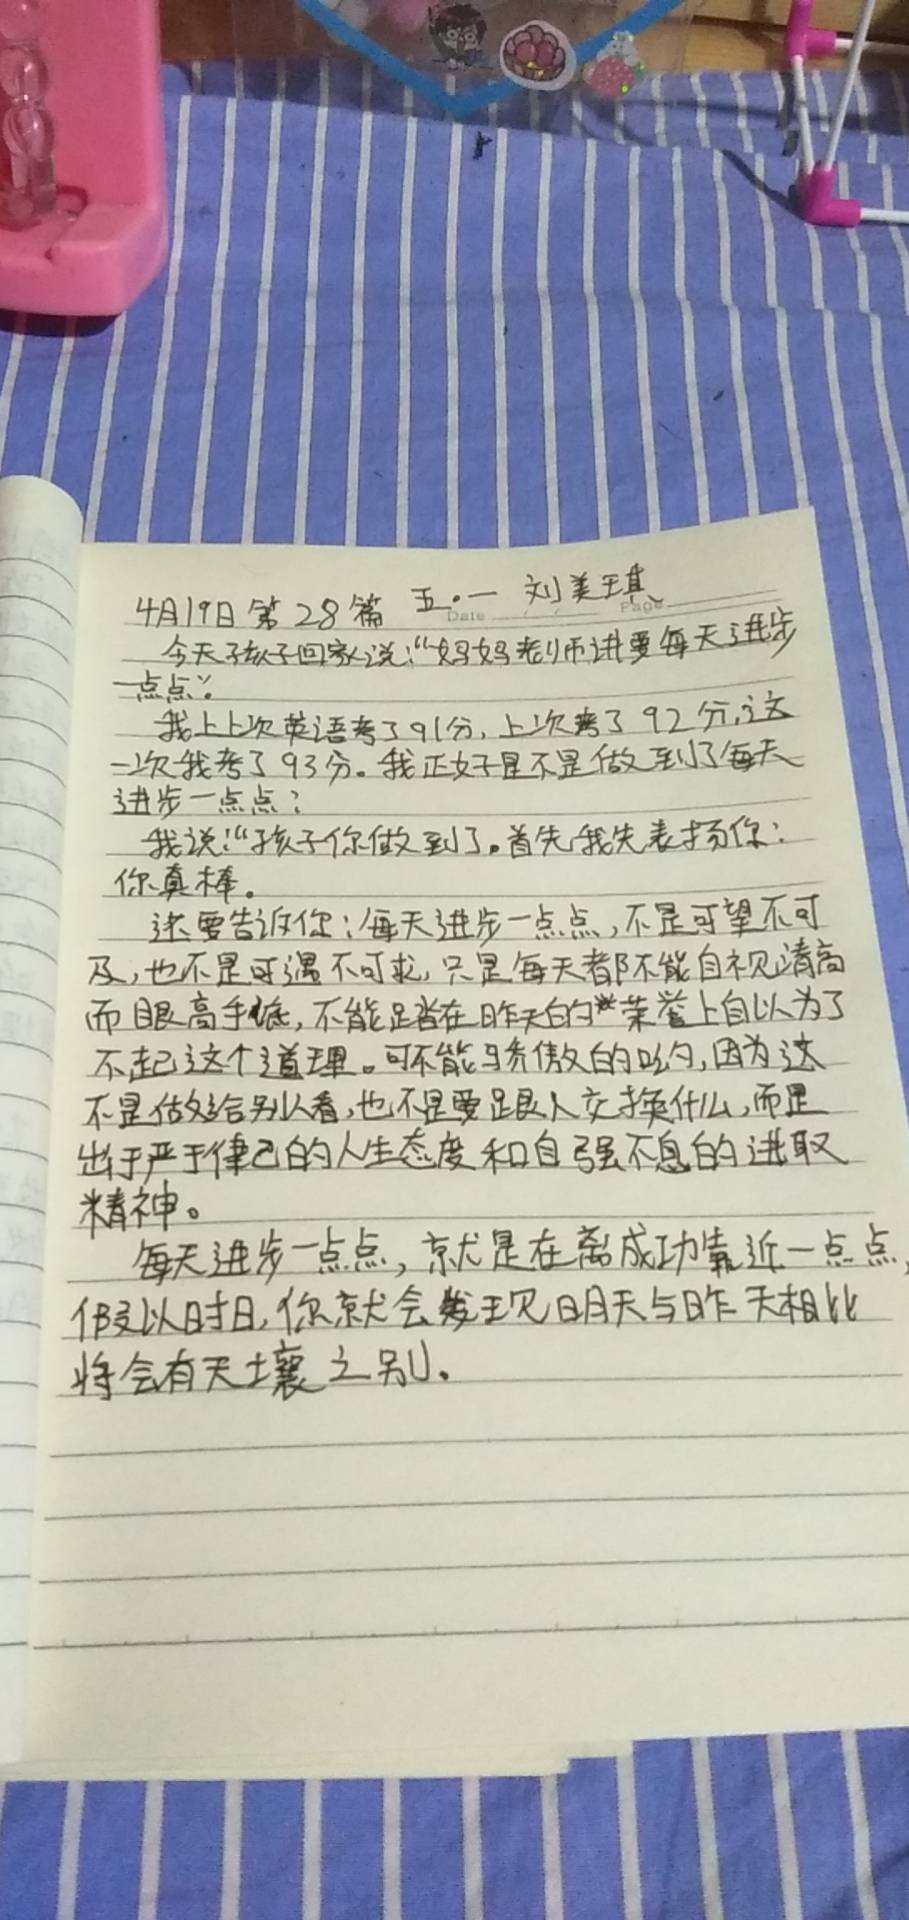 4月19日 第28篇 五.一 刘美琪
Date Page
今天孩子回家说:“妈妈老师讲要每天进步
一点点”。
我上上次英语考了91分,上次考了92分,这
一次我考了93分。我正好是不是做到了每天
进步一点点?
我说:“孩子你做到了。首先我先表扬你:
你真棒。
还要告诉你:每天进步一点点,不是可望不可
及,也不是可遇不可求,只是每天都不能自视清高
而眼高手低,不能 在昨天的荣誉上自以为了
不起这个道理。可不能骄傲的哟,因为这
不是做给别人看,也不是要跟人交换什么,而是
出于严于律己的人生态度和自强不息的进取
精神。
每天进步一点点,就是在离成功靠近一点点,
假以时日,你就会发现明天与昨天相比
将会有天壤之别。